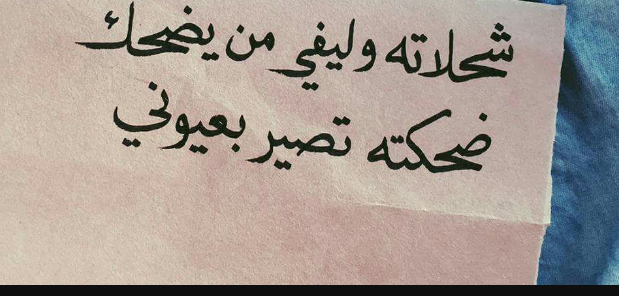 شحلاته وليفي من يضحك
ضحكته تصير بعيوني